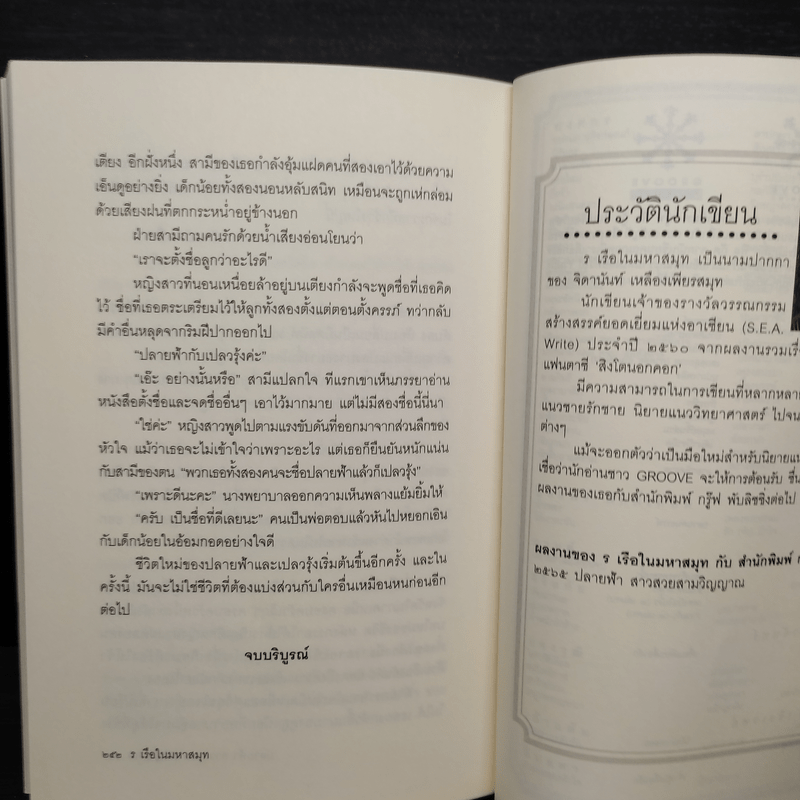 เตียง อีกฝั่งหนึ่ง สามีของเธอกำลังอุ้มแฝดคนที่สองเอาไว้ด้วยความ
เอ็นดูอย่างยิ่ง เด็กน้อยทั้งสองนอนหลับสนิท เหมือนจะถูกเห่กล่อม
ด้วยเสียงฝนที่ตกกระหน่ำอยู่ข้างนอก
ฝ่ายสามีถามคนรักด้วยน้ำเสียงอ่อนโยนว่า
“เราจะตั้งชื่อลูกว่าอะไรดี”
หญิงสาวที่นอนเหนื่อยล้าอยู่บนเตียงกำลังจะพูดชื่อที่เธอคิด
ไว้ ชื่อที่เธอตระเตรียมไว้ให้ลูกทั้งสองตั้งแต่ตอนตั้งครรภ์ ทว่ากลับ
มีคำอื่นหลุดจากริมฝีปากออกไป
“ปลายฟ้ากับเปลวรุ้งค่ะ”
“เอ๊ะ อย่างนั้นหรือ” สามีแปลกใจ ทีแรกเขาเห็นภรรยาอ่าน
หนังสือตั้งชื่อและจดชื่ออื่นๆ เอาไว้มากมาย แต่ไม่มีสองชื่อนี้นี่นา
“ใช่ค่ะ” หญิงสาวพูดไปตามแรงขับดันที่ออกมาจากส่วนลึกของ
หัวใจ แม้ว่าเธอจะไม่เข้าใจว่าเพราะอะไร แต่เธอก็ยืนยันหนักแน่น
กับสามีของตน “พวกเธอทั้งสองคนจะชื่อปลายฟ้าแล้วก็เปลวรุ้ง”
“เพราะดีนะคะ” นางพยาบาลออกความเห็นพลางแย้มยิ้มให้
“ครับ เป็นชื่อที่ดีเลยนะ” คนเป็นพ่อตอบแล้วหันไปหยอกเอิน
กับเด็กน้อยในอ้อมกอดอย่างใจดี
ชีวิตใหม่ของปลายฟ้าและเปลวรุ้งเริ่มต้นขึ้นอีกครั้ง และใน
ครั้งนี้ มันจะไม่ใช่ชีวิตที่ต้องแบ่งส่วนกับใครอื่นเหมือนหนก่อนอีก
ต่อไป
จบบริบูรณ์
๒๕๒ ร เรือในมหาสมุท
ประวัตินักเขียน
ร เรือในมหาสมุท เป็นนามปากกา
ของ จิดานันท์ เหลืองเพียรสมุท
นักเขียนเจ้าของรางวัลวรรณกรรม
สร้างสรรค์ยอดเยี่ยมแห่งอาเซียน (S.E.A.
Write) ประจำปี ๒๕๖๐ จากผลงานรวมเรื่
แฟนตาซี ‘สิงโตนอกคอก’
มีความสามารถในการเขียนที่หลากหลาย
แนวชายรักชาย นิยายแนววิทยาศาสตร์ ไปจน
ต่างๆ
แม้จะออกตัวว่าเป็นมือใหม่สำหรับนิยายแน
เชื่อว่านักอ่านชาว GROOVE จะให้การต้อนรับ ชื่น
ผลงานของเธอกับสำนักพิมพ์ กรู๊ฟ พับลิชชิ่งต่อไป
ผลงานของ ร เรือในมหาสมุท กับ สำนักพิมพ์ ก
๒๕๖๕ ปลายฟ้า สาวสวยสามวิญญาณ